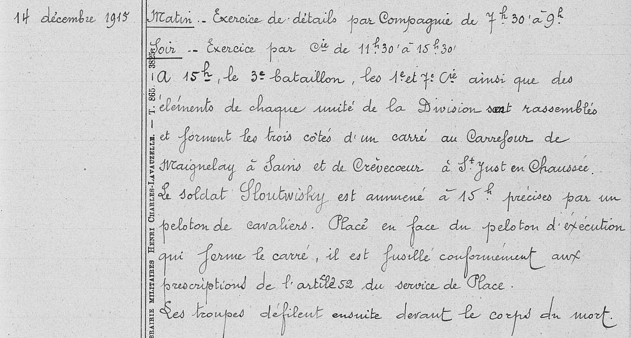 14 décembre 1915 Matin.- Exercice de détails par Compagnie de 7h30' à 9h
Soir.- Exercice par Cie de 11h30' à 15h30'
A 15h, le 3e bataillon, les 1e et 7e Cie ainsi que des
éléments de chaque unité de la Division sont rassemblés
et forment les trois côtés d'un carré au Carrefour de
Maignelay à Sains et de Crèvecoeur à St Just en Chaussée.
Le soldat Sloutwisky est ammené à 15h précises par un
peloton de cavaliers. Placé en face du peloton d'éxécution
qui forme le carré, il est fusillé conformément aux
prescriptions de l'article 52 du service de Place.
Les troupes défilent ensuite devant le corps du mort.
BRAIRIE MILITAIRES HENRI CHARLES-LAVAUZELLE. — T. 865.